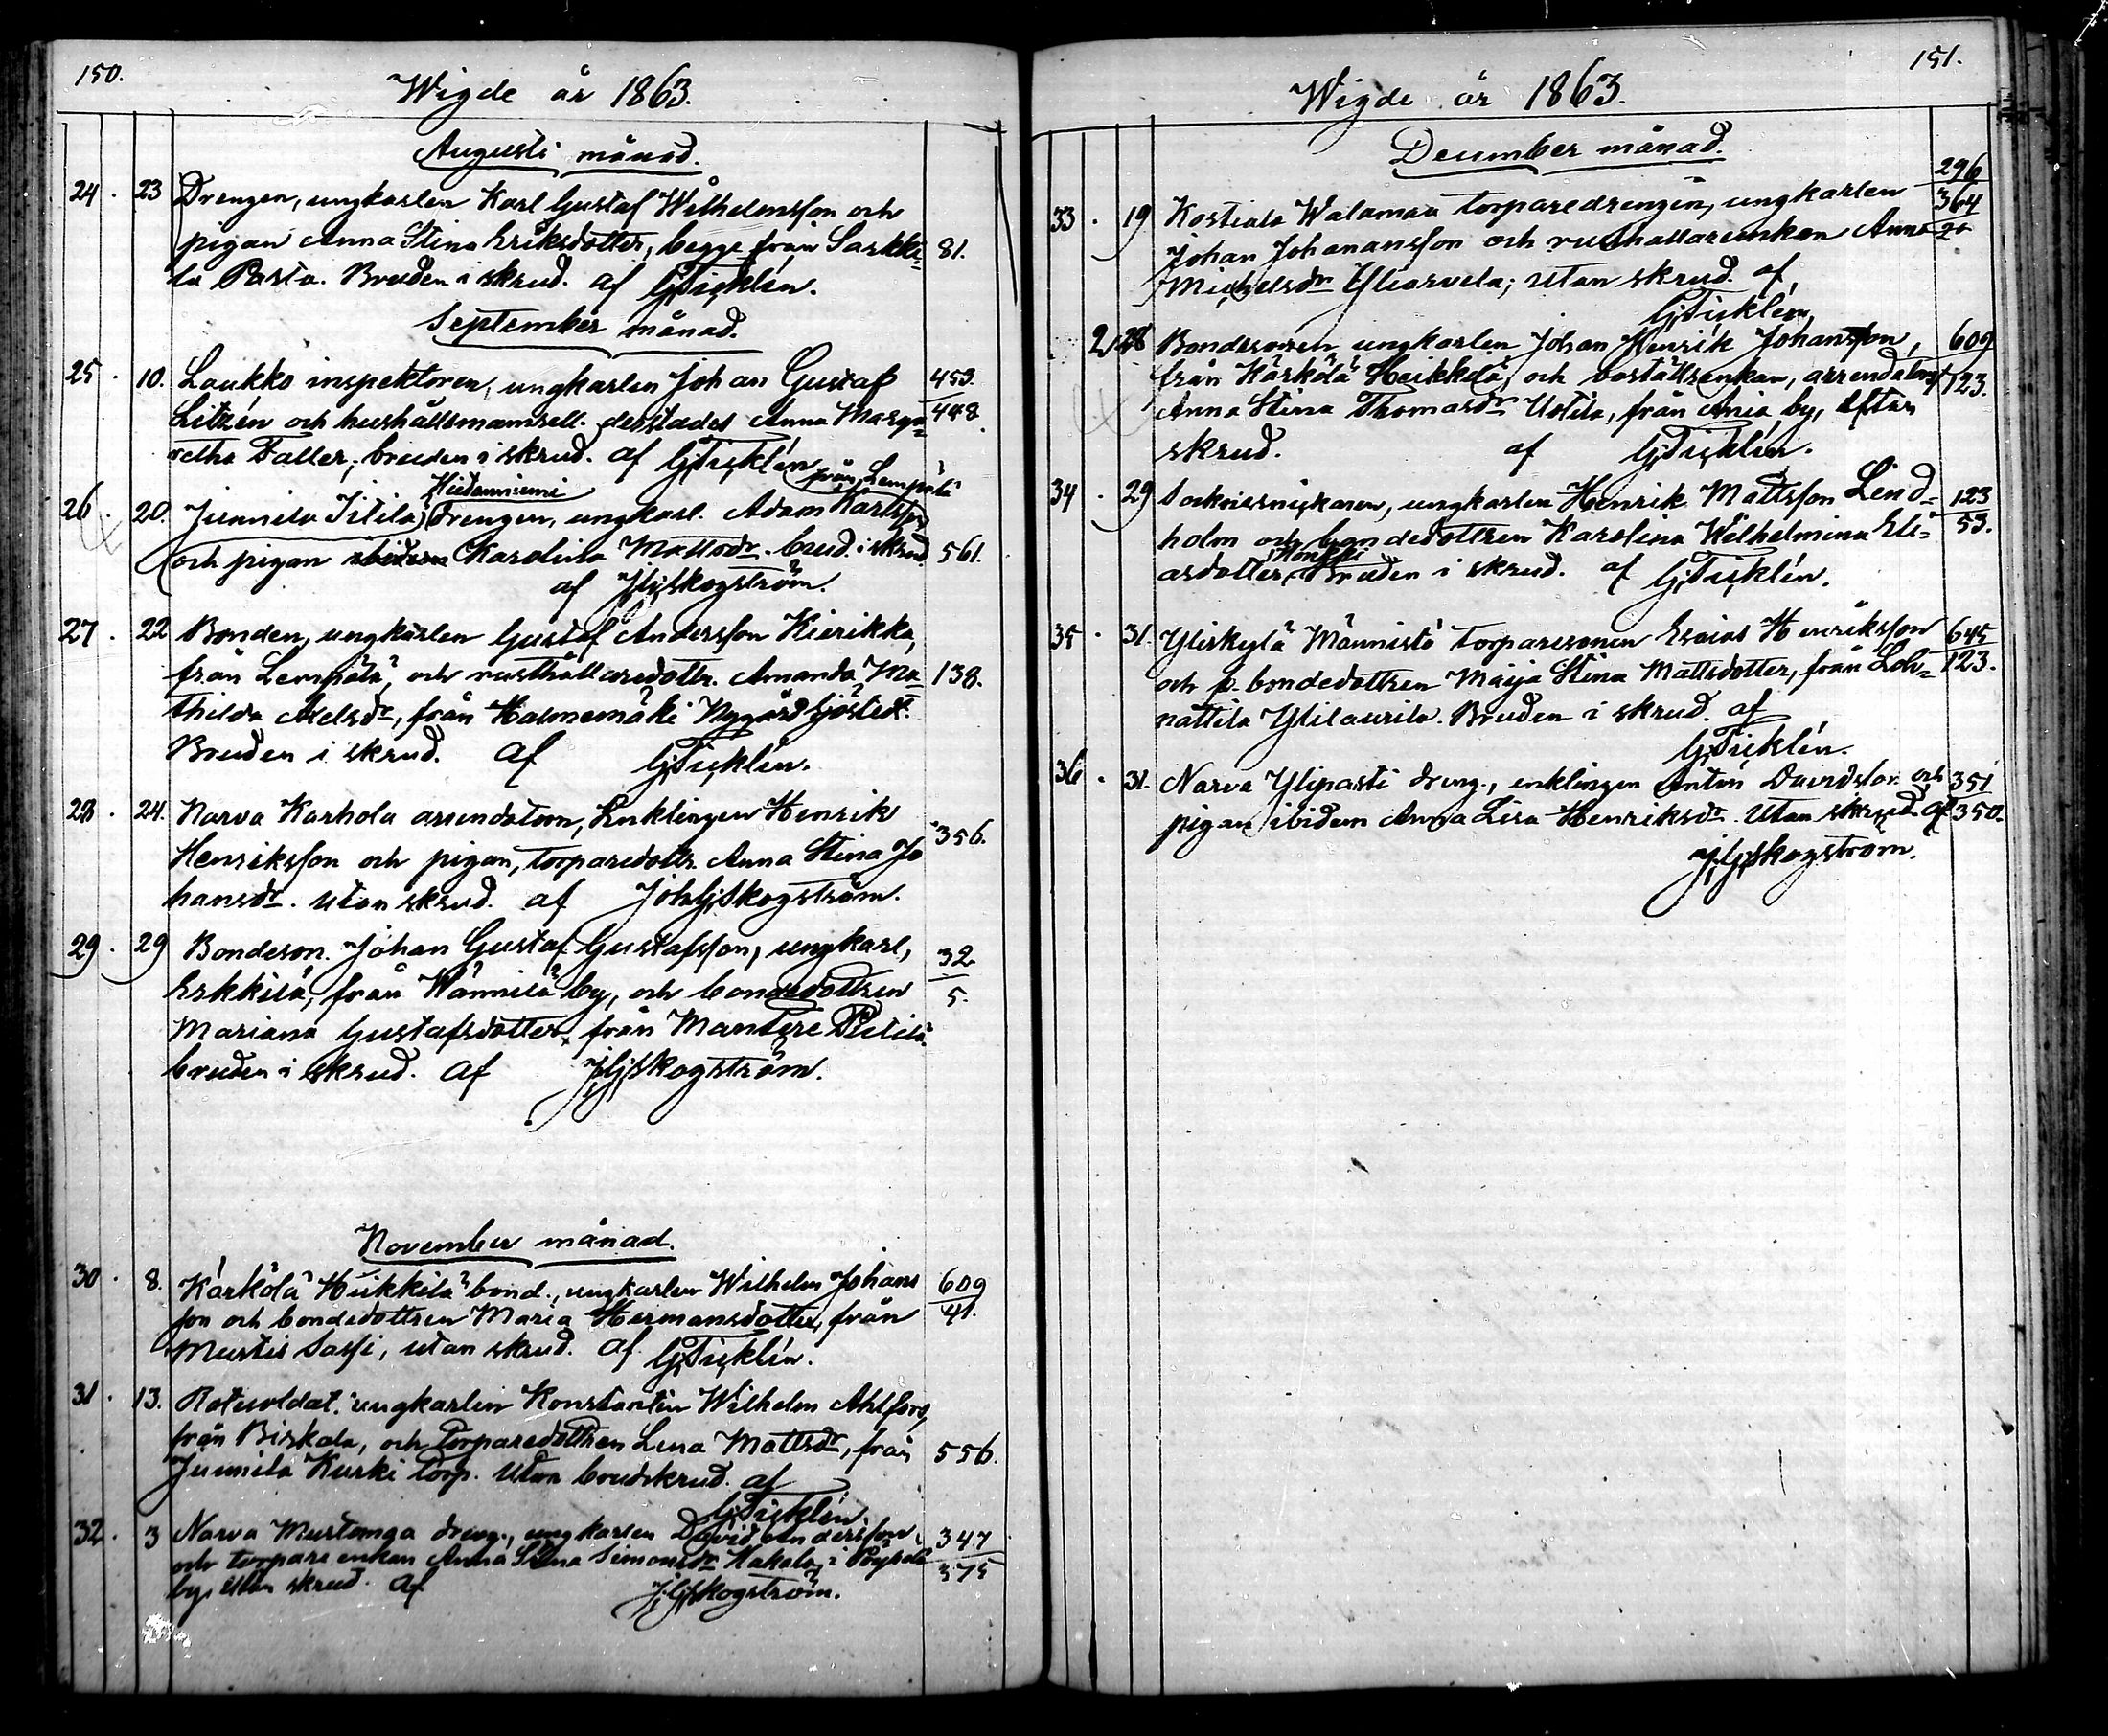 150.
Wigde år 1863.
Augusti månad.
24. 23 Drengen, ungkarlen Karl Gustaf Wilhelmsson och
pigan Anna Stina Eriksdotter, begge från Sarkki- 81.
la Pasta. Bruden i skrud. af G,Ticklén.
September månad.
25. 10. Laukko inspektoren, ungkarlen Johan Gustaf 453.
Litzén och hushållsmamsell. derstädes Anna Marga= 448.
retha Faller, bruden i skrud. af G,Ticklén
Hiidenniemi från Lempälä
26. 20. Junnila Iilila, drengen, ungkarl. Adam Karlsson
och pigan Karolina Mattsdr. brud. i skrud 561.
af J,G,Skogström.
27. 22 Bonden, ungkarlen Gustaf Andersson Kierikka,
från Lempälä, och rusthållaredottr. Amanda Ma= 138.
thilda Axelsdr, från Halmemäki Nygård Sjöstedt.
Bruden i skrud. af G,Ticklén.
28. 24. Narva Karhola arrendatorn, Enklingen Henrik
Henriksson och pigan, torparedottr. Anna Stina Jo 356.
hansdr. utan skrud. af Joh,G,Skogström.
29. 29 Bondeson. Johan Gustaf Gustafsson, ungkarl, 32
Erkkilä, från Wännilä by, och bondedottren 5.
Mariana Gustafsdotter, från Mantere
bruden i skrud. af J,G,Skogström.
November månad.
30. 8. Kärkölä Heikkilä bond., ungkarlen Wilhelm Johans 609
son och bondedottren Maria Hermansdotter, från 41.
Murtis Sassi, utan skrud. af G,Ticklén.
31. 13. Rotesoldat. ungkarlen Konstantin Wilhelm Ahlfors,
från Birkala, och torparedottren Lena Mattsdr, från 556.
Junnila Kurki torp. Utan brudskrud. af
G,Ticklén.
32. 3 Narva Mustanga dreng., ungkarlen David Andersson 347
och torpare enkan Anna Stina Simonsdr Hakala, i 375
by, utan skrud. af J,G,Skogström.
151.
Wigde år 1863.
December månad.
296
33. 19 Kostiala Walamaa torparedrengen, ungkarlen 364
Johan Johanansson och rusthållareenkan Anna 20
Michelsdr Yliarvela, utan skrud. af
G,Ticklén,
28 Bondesonen ungkarlen Johan Henrik Johansson, 609
från Kärkölä Heikkilä, och boställsenkan, 123.
Anna Stina Thomasdr Uotila, från Ania by, Utan
skrud. af G,Ticklén.
34. 29 Sockensnickaren, ungkarlen Henrik Mattsson Lind= 123
holm och bondedottren Karolina Wilhelmina Eli= 53.
asdotter, Bruden i skrud. af G,Ticklén.
35. 31. Yliskylä Männistö torparesonen Esaias Henriksson 645
och p. bondedottren Maija Stina Mattsdotter, från Leh= 123.
nattila Ylilaurila. Bruden i skrud. af
G,Ticklén.
36. 31. Narva Ylipasti dreng., enklingen Anton Davidsson och 351
pigan ibidem Anna Lisa Henriksdr. Utan skrud. af 350.
J,G,Skogström.